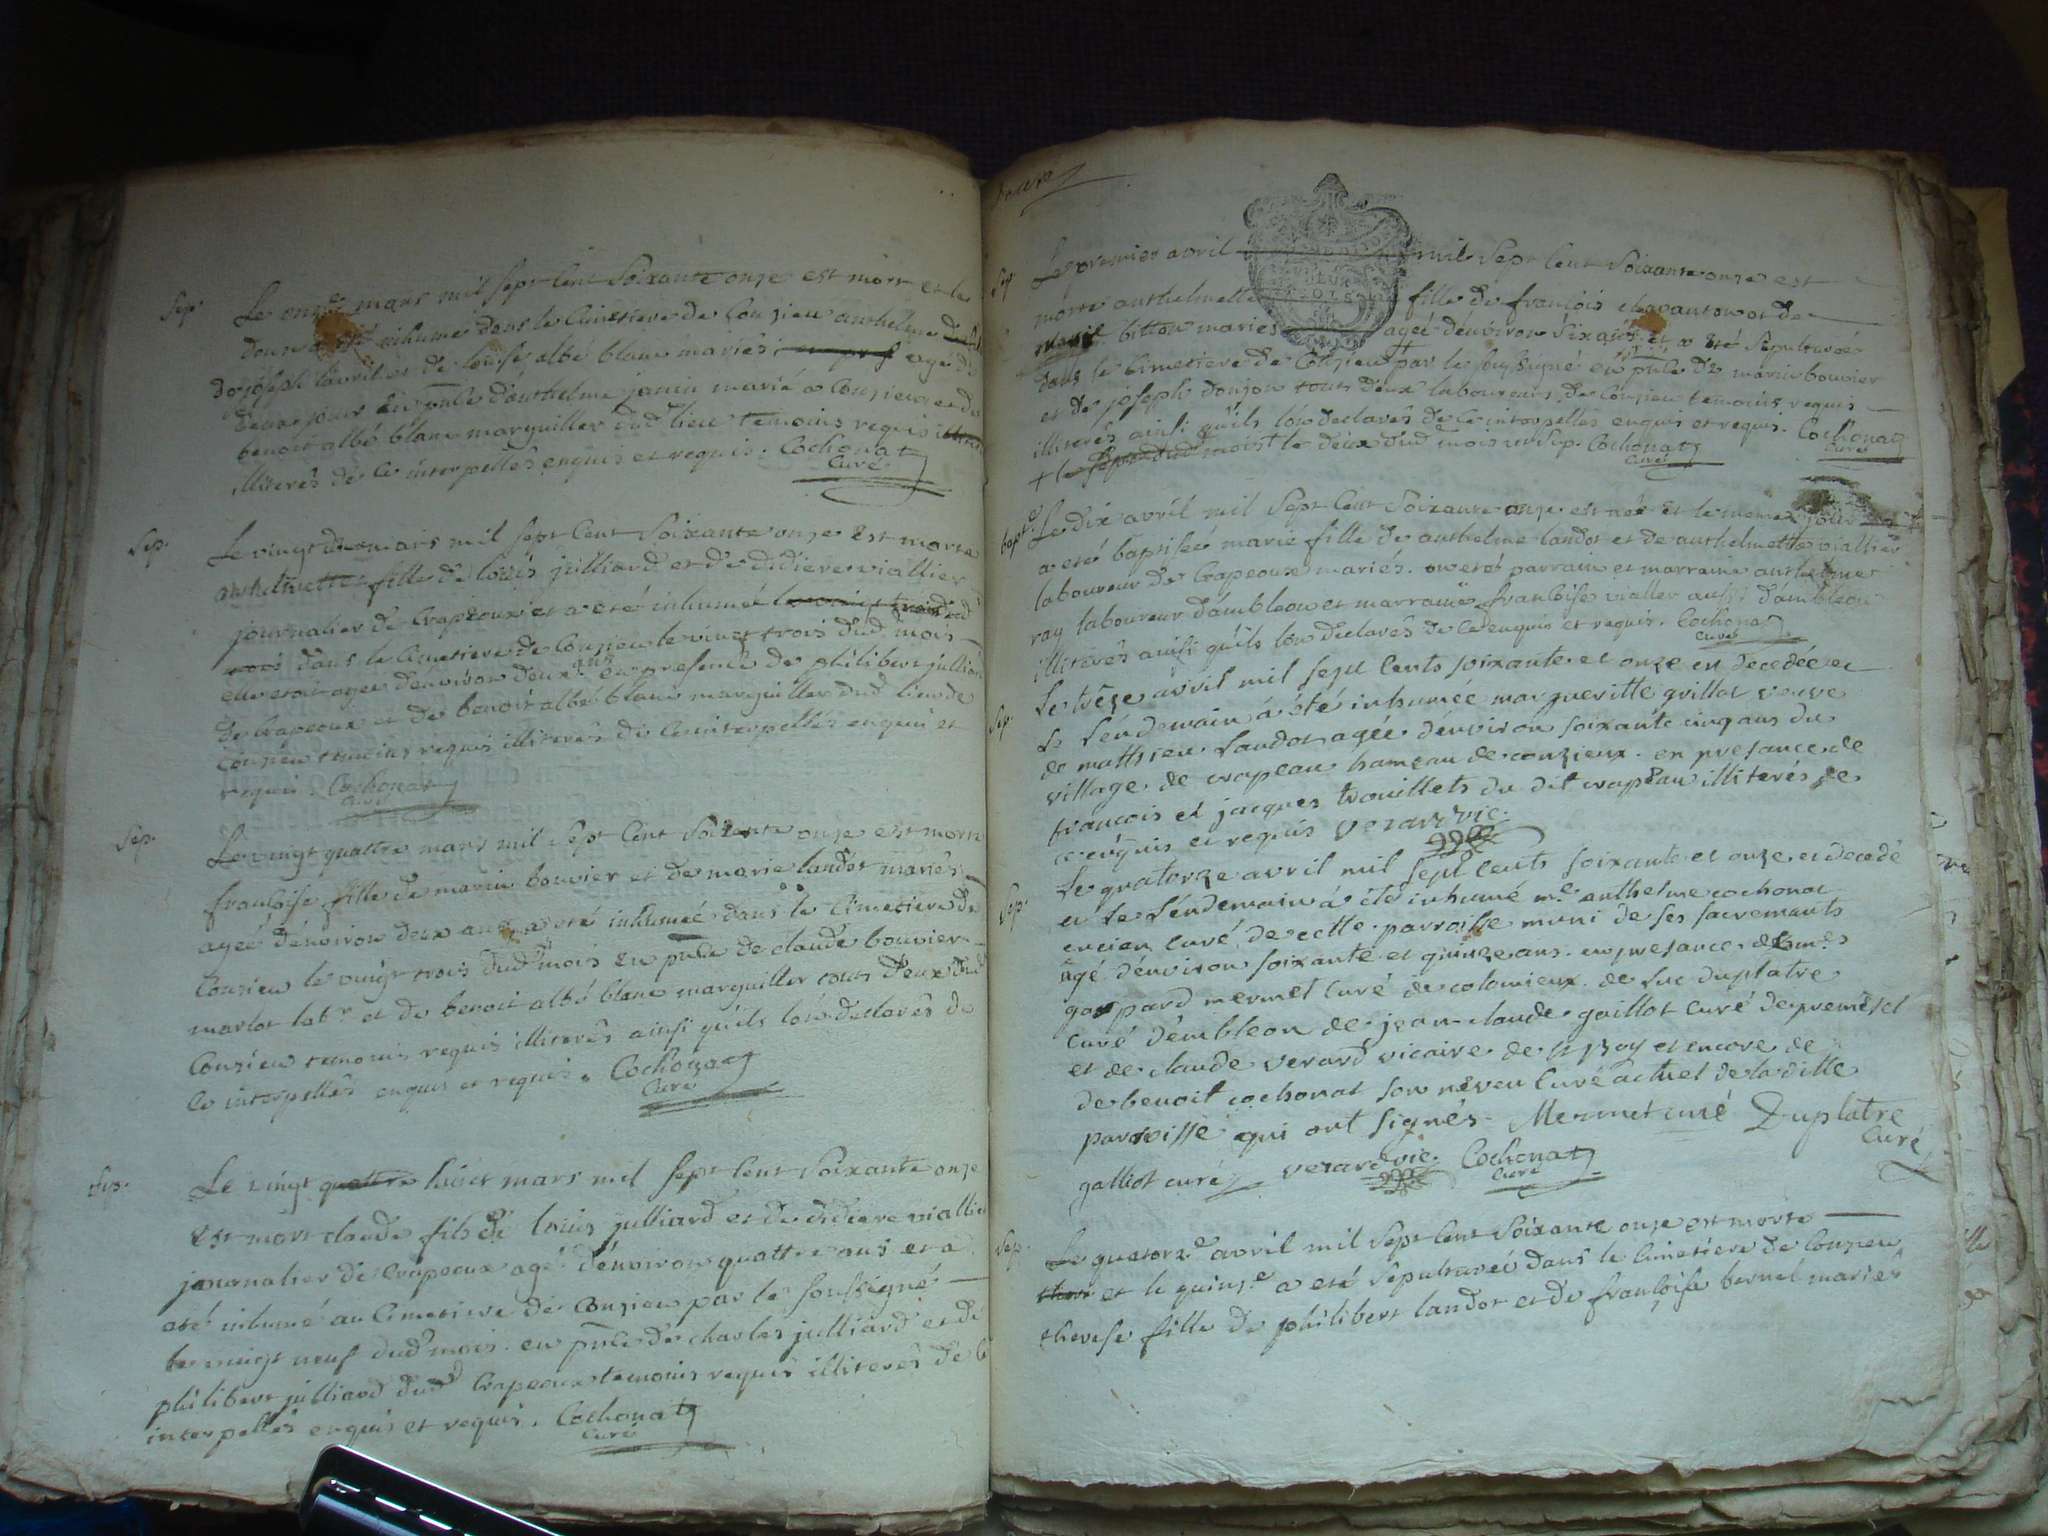 Sep.
Le onze mars mil Sept Cent Soixante onze est mort et le
inhumé dans le Cimetiere de Conzieu anthelme
de joseph et de albé blanc mariés agé de
deux jours En pnce d'anthelme janin marié a Conzieu et de
benoit albé blanc marguillier dud lieu temoins requis
illiterés de Ce interpellés enquis et requis. Cochonat
Curé
Sep.
Le vingt mars mil Sept Cent Soixante onze Est morte
anthelmette fille de loüis julliard et de didiere viallier
journalier de Crapeoux et a eté inhumée
dans le Cimetiere de Conzieu le vingt trois dud mois
elle etoit agée d'environ deux ans en presence de philibert julliard
de Crapeoux et de benoit albé blanc marguillier dud lieu de
Conzieu temoins requis illiterés de Ce interpellés enquis et
requis. Cochonat
Curé
Sep.
Le vingt quattre mars mil Sept Cent Soixante onze est morte
françoise fille de marin bouvier et de marie landot mariés
agée d'environ deux ans a eté inhumée dans le Cimetiere de
Conzieu le vingt trois dud mois En pnce de claude bouvier
marlot labr et de benoit albé blanc marguillier tous deux dud
Conzieu temoins requis illiterés ainsi qu'ils l'ont declarés de
Ce interpellés enquis et requis. Cochonat
Curé
Sep.
Le vingt quattre huict mars mil Sept Cent Soixante onze
Est mort claude fils de loüis julliard et de didiere viallier
journalier de Crapeoux agé d'environ quattre ans et a
eté inhumé au Cimetiere de Conzieu par le Soussigné
le vingt neuf dud mois. en pnce de charles julliard et de
philibert julliard dud Crapeoux temoins requis illiterés de Ce
interpellés enquis et requis. Cochonat
Curé
Sep.
Le premier avril mil Sept Cent Soixante onze est
morte anthelmette fille de françois et de
bitton mariés agée d'environ Six ans et a eté Sepulturée
dans le Cimetiere de Conzieu par le soussigné en pnce de marin bouvier
et de joseph donjon tous deux laboureurs de Conzieu temoins requis
illiterés ainsi qu'ils l'on declarés de Ce interpellés enquis et requis. Cochonat
Curé
+ le deux dud mois Cochonat
Curé
bapt.
Le dix avril mil Sept Cent Soixante onze est née et le meme jour
a eté baptisée marie fille de anthelme landot et de anthelmette viallier
laboureur de Crapeoux mariés. on eté parrain et marraine anthelme
ray laboureur d'ambleon et marraine françoise viallier aussi d'ambleon
illiterés ainsi qu'ils l'on declarés de Ce enquis et requis. Cochonat
Curé
Sep.
Le trèze avril mil sept cents soixante et onze est decedée et
le l'endemain á été inhumée margueritte grillot veuve
de mathieu landot agée d'environ soixante cinq ans du
village de crapeau hameau de conzieux. en presance de
francois et jacques trouillets du dit crapeau illiterés de
ce enquis et requis verard vic.
Sep.
Le quatorze avril mil sept cents soixante et onze et decedé
et le l'endemain á été inhumé mre anthelme cochonat
encien curé de cette parroisse muni de ses sacremants
agé d'environ soixante et quinze ans. en presance de mres
gaspard mermet curé de colomieux. de luc duplatre
curé d'embleon de jean-claude gaillot curé de premeisel
et de claude verard vicaire de st Boy et encore de
de benoit cochonat son neveu curé actuel de la ditte
parroisse qui ont signés. Mermet curé Duplatre
Curé
galliot curé verard vic. Cochonat
Curé
Sep.
Le quatorze avril mil Sept Cent Soixante onze est morte
et le quinze a eté Sepulturée dans le Cimetiere de Conzieu
therese fille de philibert landot et de françoise bernel mariés